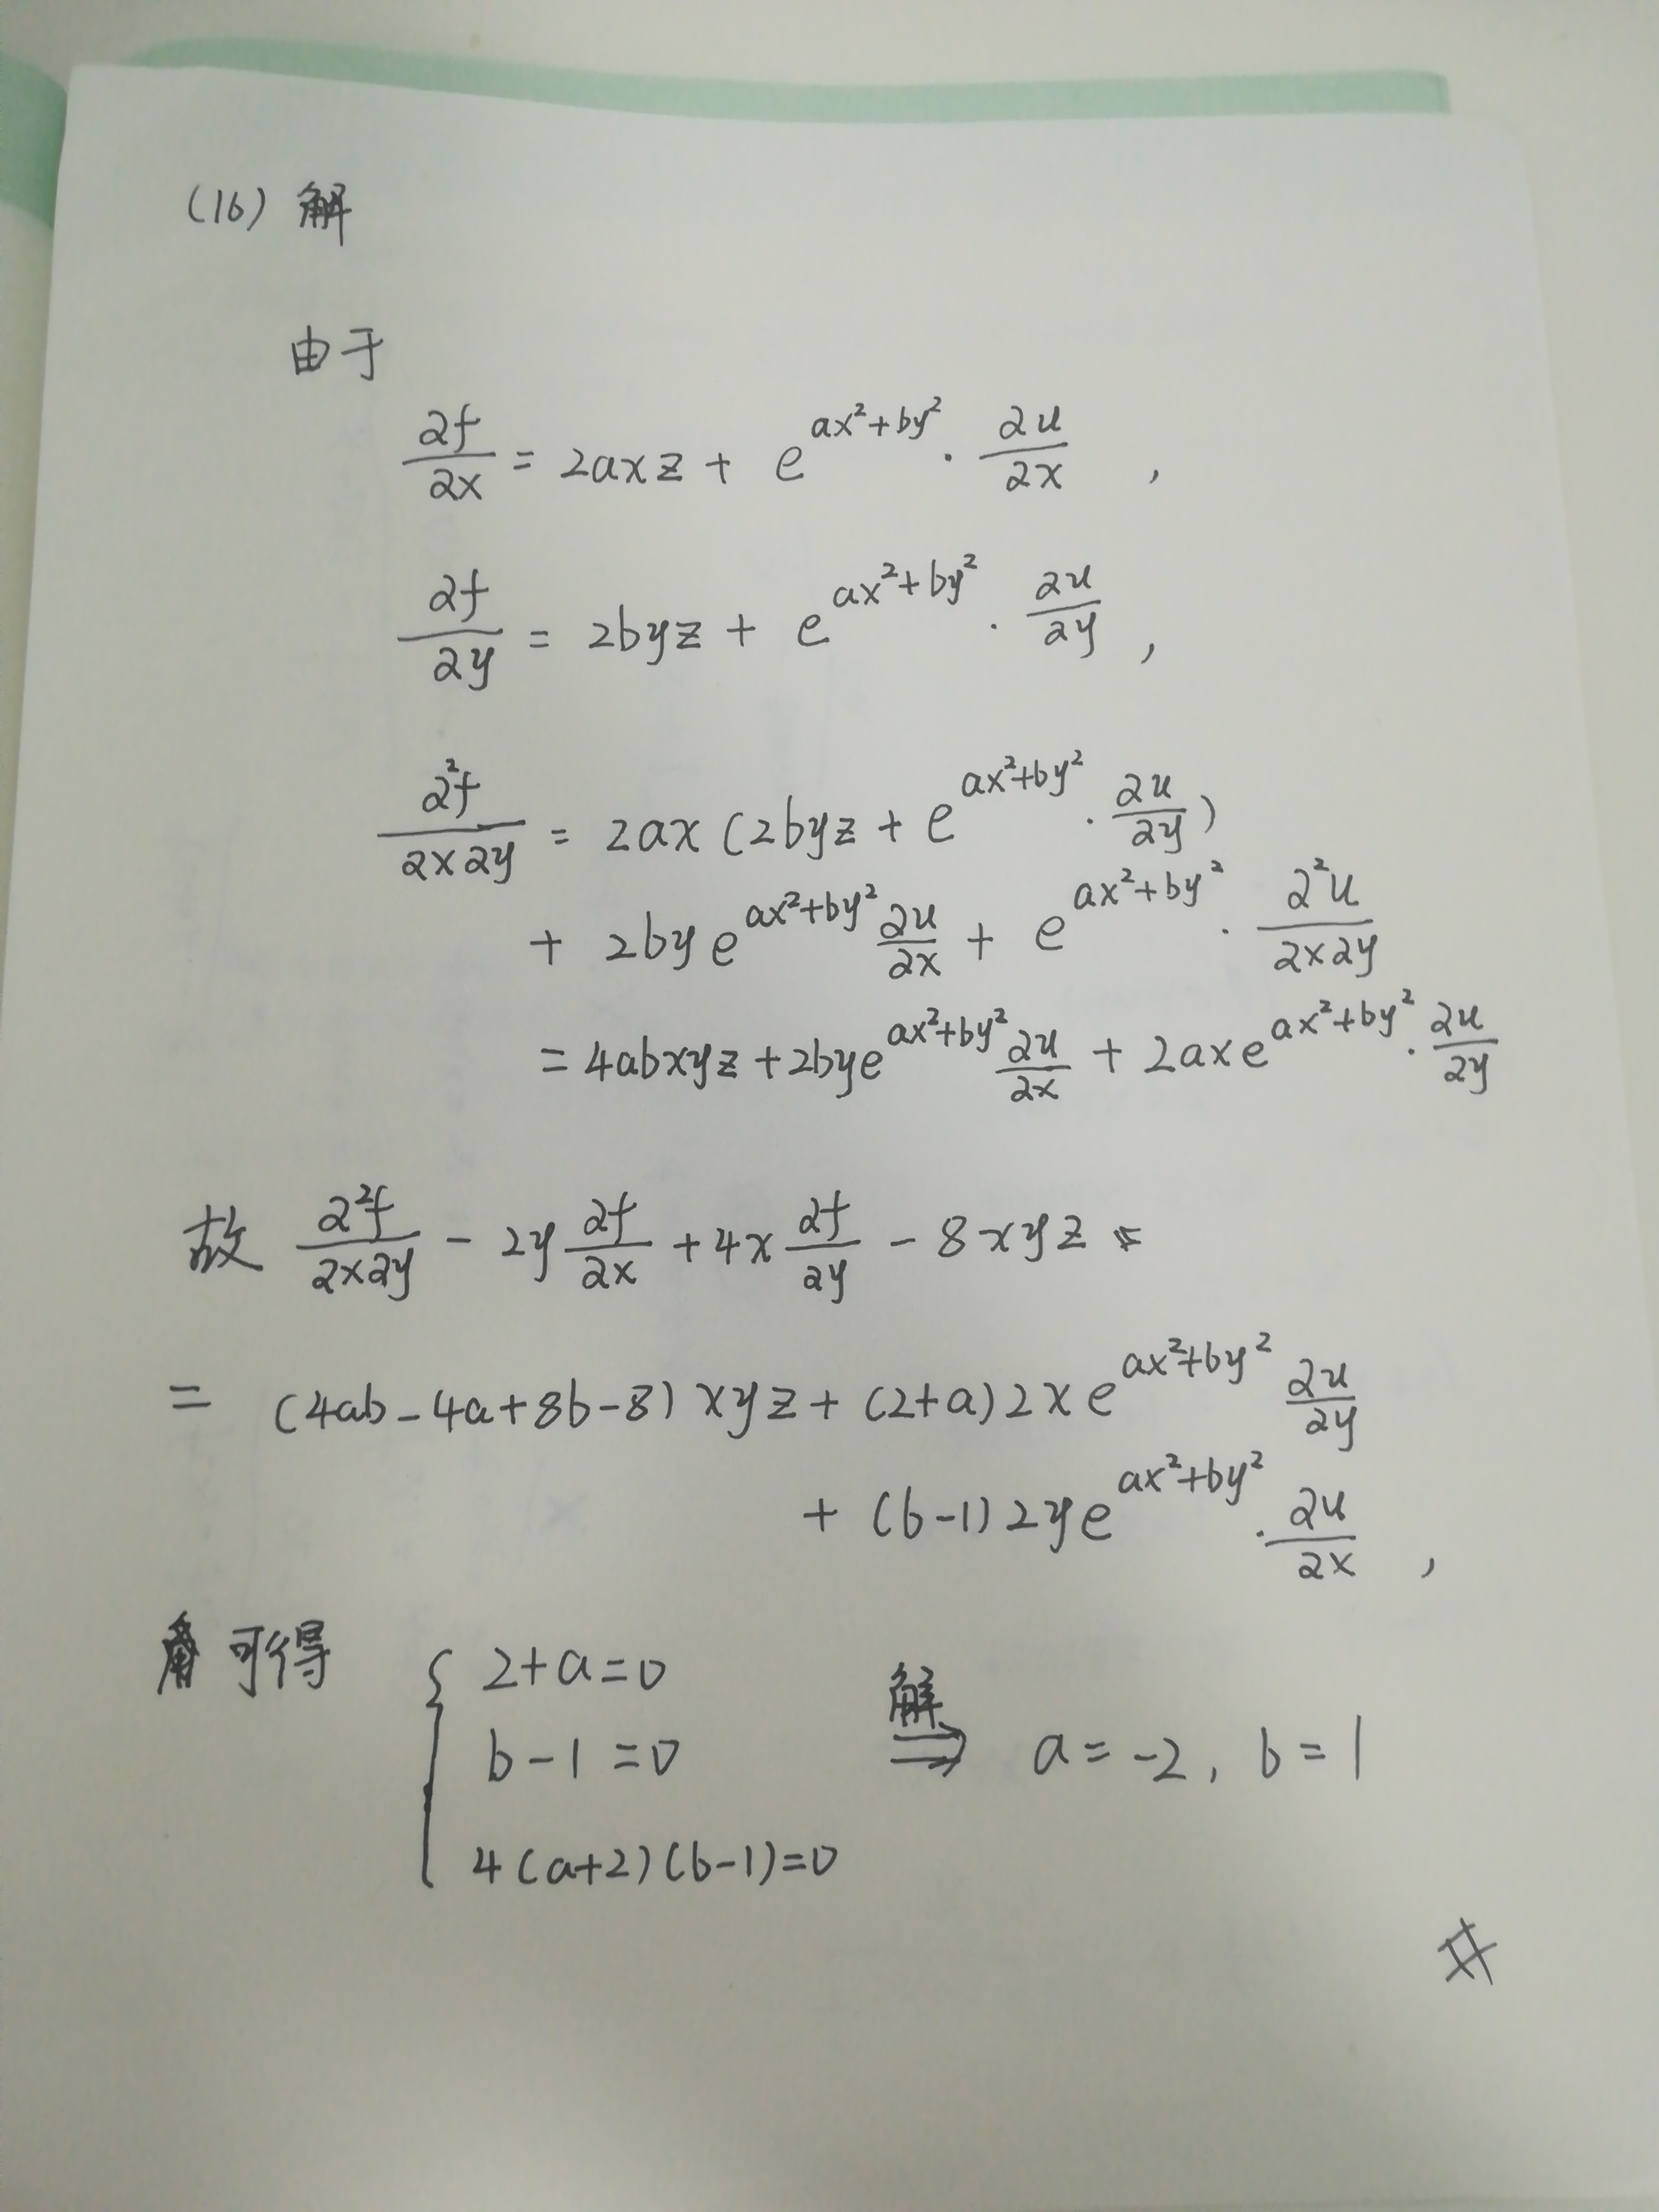 (16) 解
由于
∂f/∂x = 2axz + e^(ax²+by²) · ∂u/∂x ,
∂f/∂y = 2byz + e^(ax²+by²) · ∂u/∂y ,
∂²f/∂x∂y = 2ax (2byz + e^(ax²+by²) · ∂u/∂y)
+ 2by e^(ax²+by²) ∂u/∂x + e^(ax²+by²) · ∂²u/∂x∂y
= 4abxyz + 2bye^(ax²+by²) ∂u/∂x + 2axe^(ax²+by²) · ∂u/∂y
故 ∂²f/∂x∂y - 2y ∂f/∂x + 4x ∂f/∂y - 8xyz =
= (4ab - 4a + 8b - 8) xyz + (2+a) 2x e^(ax²+by²) ∂u/∂y
+ (b-1) 2y e^(ax²+by²) · ∂u/∂x ,
可得 { 2+a=0
b-1=0 解 ⟹ a=-2, b=1
4(a+2)(b-1)=0
#